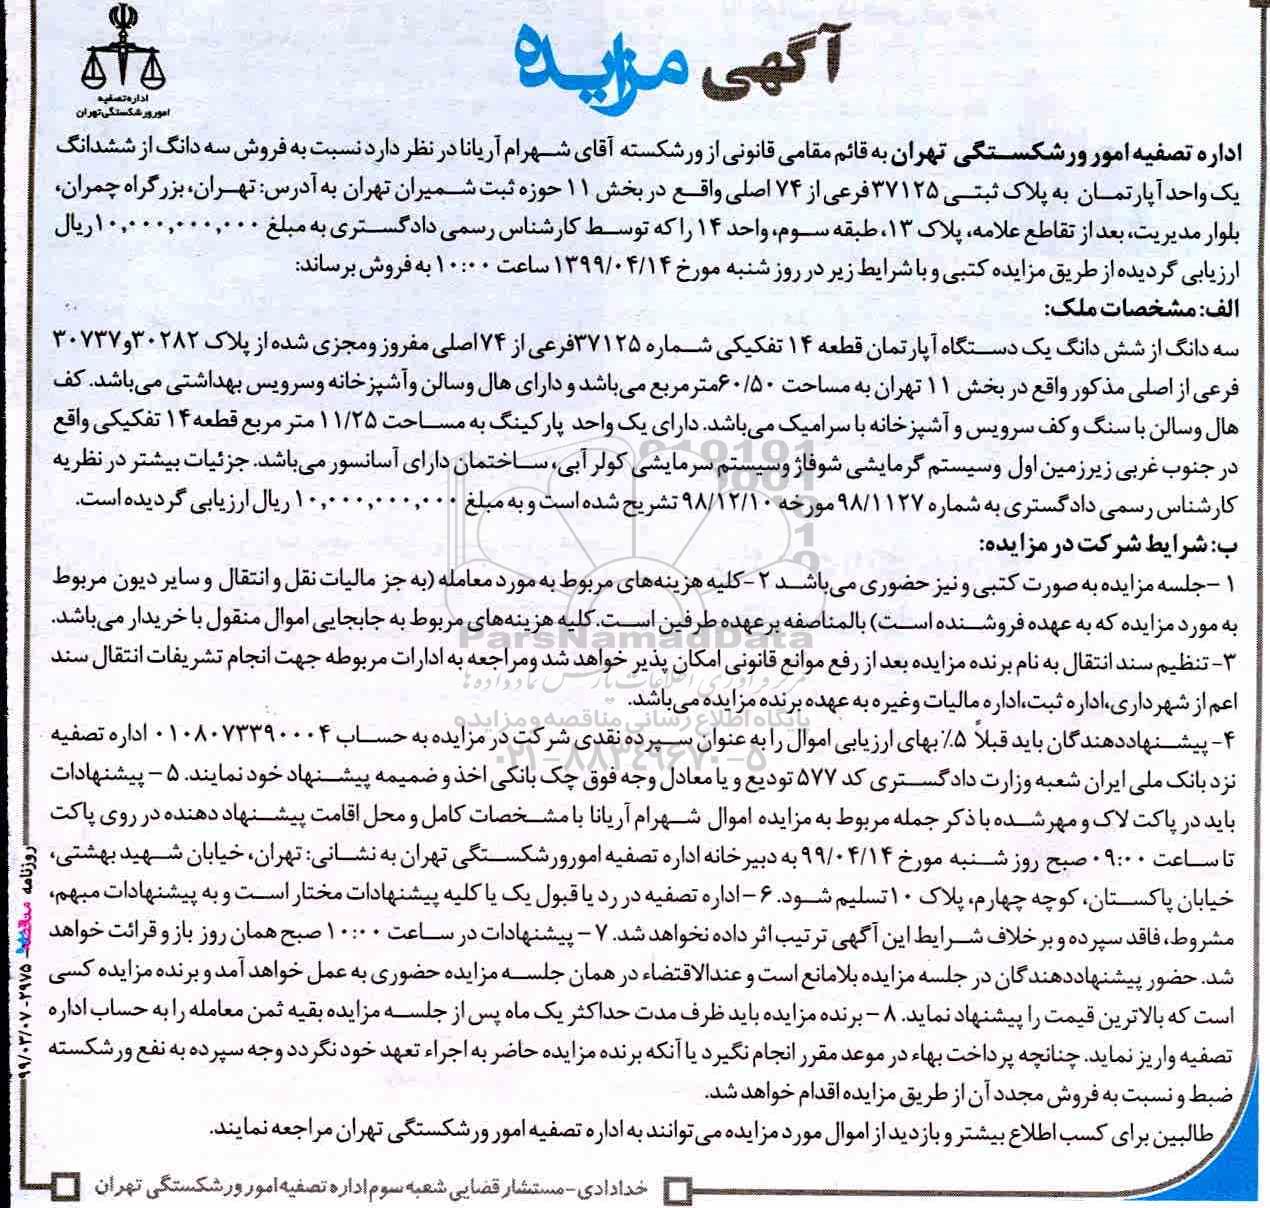 آگهی مزایده
اداره تصفیه
امور ورشکستگی تهران
اداره تصفیه امور ورشکستگی تهران به قائم مقامی قانونی از ورشکسته آقای شهرام آریانا در نظر دارد نسبت به فروش سه دانگ از ششدانگ
یک واحد آپارتمان به پلاک ثبتی ۳۷۱۲۵فرعی از ۷۴ اصلی واقع در بخش ۱۱ حوزه ثبت شمیران تهران به آدرس: تهران، بزرگراه چمران،
بلوار مدیریت، بعد از تقاطع علامه، پلاک ۱۳، طبقه سوم، واحد ۱۴ را که توسط کارشناس رسمی دادگستری به مبلغ ۱۰,۰۰۰,۰۰۰,۰۰۰ریال
ارزیابی گردیده از طریق مزایده کتبی و با شرایط زیر در روز شنبه مورخ ۱۳۹۹/۰۴/۱۴ ساعت ۱۰:۰۰ به فروش برساند:
الف: مشخصات ملک:
سه دانگ از شش دانگ یک دستگاه آپارتمان قطعه ۱۴ تفکیکی شماره ۳۷۱۲۵فرعی از ۷۴اصلی مفروز ومجزی شده از پلاک ۳۰۲۸۲و۳۰۷۳۷
فرعی از اصلی مذکور واقع در بخش ۱۱ تهران به مساحت ۶۰/۵۰مترمربع می‌باشد و دارای هال وسالن وآشپزخانه وسرویس بهداشتی می‌باشد. کف
هال وسالن با سنگ و کف سرویس و آشپزخانه با سرامیک می‌باشد. دارای یک واحد پارکینگ به مساحت ۱۱/۲۵ متر مربع قطعه۱۴ تفکیکی واقع
در جنوب غربی زیرزمین اول وسیستم گرمایشی شوفاژ وسیستم سرمایشی کولر آبی، ساختمان دارای آسانسور می‌باشد. جزئیات بیشتر در نظریه
کارشناس رسمی دادگستری به شماره ۹۸/۱۱۲۷مورخه ۹۸/۱۲/۱۰ تشریح شده است و به مبلغ ۱۰,۰۰۰,۰۰۰,۰۰۰ ریال ارزیابی گردیده است.
ب: شرایط شرکت در مزایده:
۱ -جلسه مزایده به صورت کتبی و نیز حضوری می‌باشد ۲-کلیه هزینه‌های مربوط به مورد معامله (به جز مالیات نقل و انتقال و سایر دیون مربوط
به مورد مزایده که به عهده فروشنده است) بالمناصفه برعهده طرفین است. کلیه هزینه‌های مربوط به جابجایی اموال منقول با خریدار می‌باشد.
۳- تنظیم سند انتقال به نام برنده مزایده بعد از رفع موانع قانونی امکان پذیر خواهد شد ومراجعه به ادارات مربوطه جهت انجام تشریفات انتقال سند
اعم از شهرداری،اداره ثبت،اداره مالیات وغیره به عهده برنده مزایده می‌باشد.
۴- پیشنهاددهندگان باید قبلاً ۵٪ بهای ارزیابی اموال را به عنوان سپرده نقدی شرکت در مزایده به حساب ۰۱۰۸۰۷۳۳۹۰۰۰۴ اداره تصفیه
نزد بانک ملی ایران شعبه وزارت دادگستری کد ۵۷۷ تودیع و یا معادل وجه فوق چک بانکی اخذ و ضمیمه پیشنهاد خود نمایند. ۵ - پیشنهادات
باید در پاکت لاک و مهر شده با ذکر جمله مربوط به مزایده اموال شهرام آریانا با مشخصات کامل و محل اقامت پیشنهاد دهنده در روی پاکت
تا ساعت ۰۹:۰۰ صبح روز شنبه مورخ ۹۹/۰۴/۱۴ به دبیرخانه اداره تصفیه امورورشکستگی تهران به نشانی: تهران، خیابان شهید بهشتی،
خیابان پاکستان، کوچه چهارم، پلاک ۱۰ تسلیم شود. ۶ -اداره تصفیه در رد یا قبول یک یا کلیه پیشنهادات مختار است و به پیشنهادات مبهم،
مشروط، فاقد سپرده و برخلاف شرایط این آگهی ترتیب اثر داده نخواهد شد. ۷ - پیشنهادات در ساعت ۱۰:۰۰ صبح همان روز باز و قرائت خواهد
شد. حضور پیشنهاددهندگان در جلسه مزایده بلامانع است و عندالاقتضاء در همان جلسه مزایده حضوری به عمل خواهد آمد و برنده مزایده کسی
است که بالاترین قیمت را پیشنهاد نماید. ۸ - برنده مزایده باید ظرف مدت حداکثر یک ماه پس از جلسه مزایده بقیه ثمن معامله را به حساب اداره
تصفیه واریز نماید. چنانچه پرداخت بهاء در موعد مقرر انجام نگیرد یا آنکه برنده مزایده حاضر به اجراء تعهد خود نگردد وجه سپرده به نفع ورشکسته
ضبط و نسبت به فروش مجدد آن از طریق مزایده اقدام خواهد شد.
طالبین برای کسب اطلاع بیشتر و بازدید از اموال مورد مزایده می‌توانند به اداره تصفیه امور ورشکستگی تهران مراجعه نمایند.
خدادادی-مستشار قضایی شعبه سوم اداره تصفیه امور ورشکستگی تهران
روزنامه مناقصه - ۲۹۷۵ - ۹۹/۰۳/۰۷
ParsNamadData
پایگاه اطلاع رسانی مناقصه و مزایده
۰۲۱-۸۸۳۴۹۶۷۰-۵